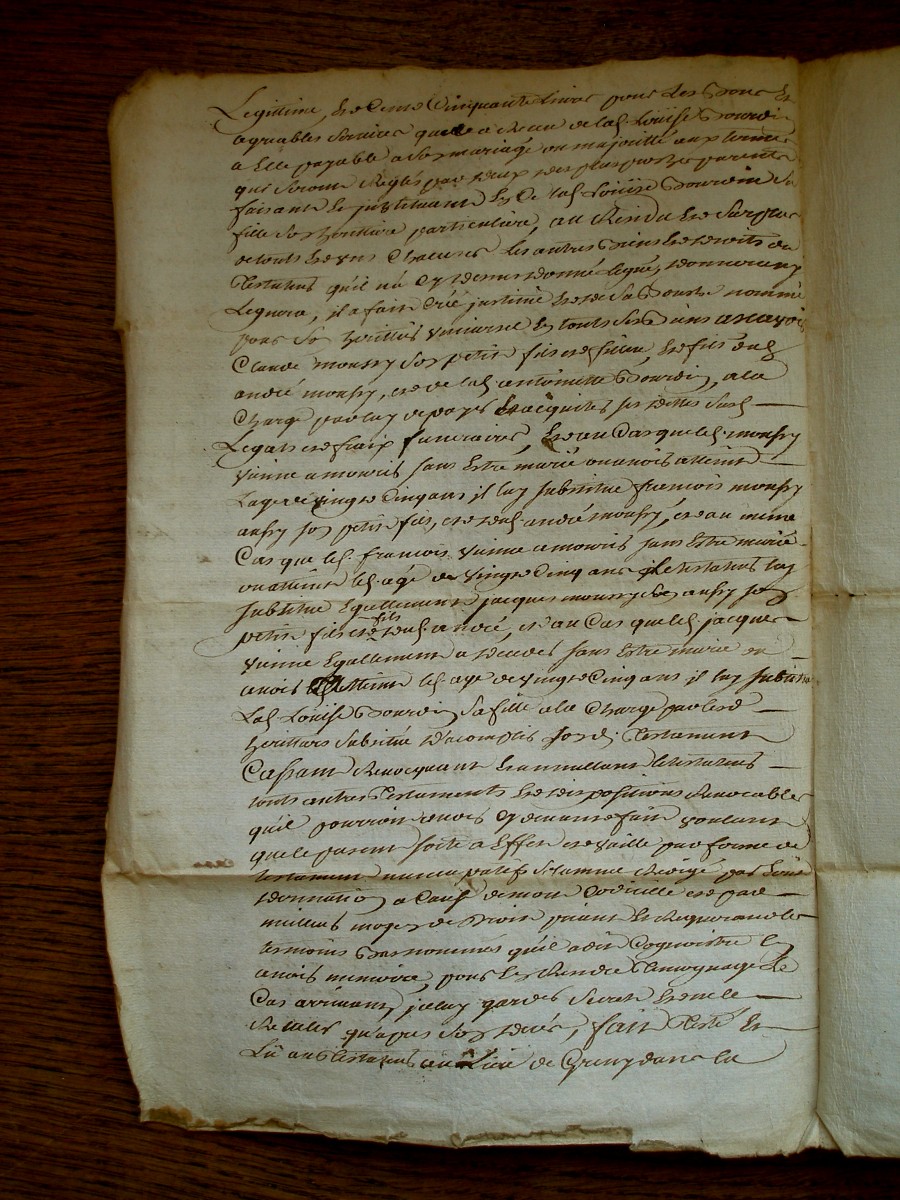 Legitime, et de cent cinquante livres pour les bons et
agreables services quelle a receu de lad. Louïse Bourdin
a elle payable a son mariage ou majorité aux termes
qui seront reglés par deux des plus proches parents
faisant et jnstituant lad. Louïse Bourdin sa
fille son heritiere particuliere, au Residu et surplus
de touts et uns chacuns les autres biens et droits du
Testateur qu'il n'a cy dessus donné legué, donnera ny
Leguera, il a fait créé jnstitué et de sa bouche nommé
pour son heritier universel en touts ses biens ascavoir
Claude monfry son petit fils et filleu, et fils dud.
andré monfry, et de lad. antoinette Bourdin, a la
Charge par luy de payer et acquiter ses dettes susd.
Legats et fraix funeraires, et au cas que led. monfry
vienne a mourir sans estre marié ou avoir atteint
Lage de vingt cinq ans il luy substitue francois monfry
aussy son petit fils, et dud. andré monfry, et au même
Cas que led. francois vienne a mourir sans estre marié
ou atteint led. age de vingt cinq ans led. testateur luy
substitue Egallement jacques monfry aussy son
petit fils et fils dud. andré, et au cas que led. jacques
vienne Egallement a deceder sans estre marié ou
avoir atteint led. age de vingt cinq ans il luy substitue
Lad. Louïse Bourdin sa fille a la charge par lesd.
heritiers substitué d'acomplir son d. Testament
Cassant Revocquant et annullant le testateur
touts autres Testaments et dispositions Revocables
qu'il pourroit avoir cy devant fait voulant
que le present sorte a Effet et vaille par forme de
testament nuncupatif Solemne Redigé par Ecrit
donnation a cause de mort Codicille et par
meilleur moyen de Droit priant et Requerant les
temoins bas nommés qu'il a dit Cognoistre en
avoir memoire, pour en rendre temoignage le
Cas arrivant, jceluy garder secret et ne le
Reveler qu'apres son deces, fait Testé et
Lû au Testateur au Lieu de Grury dans la